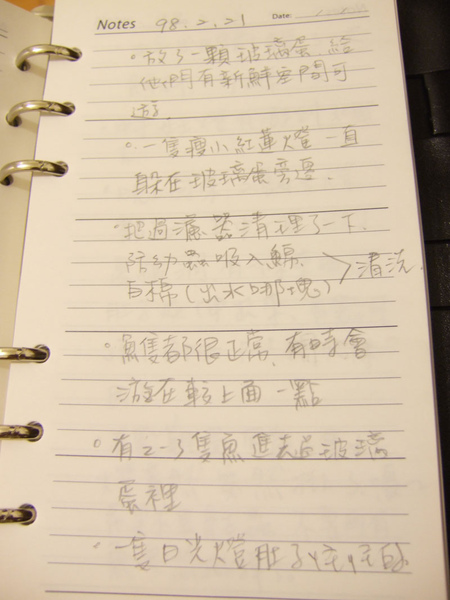 Notes 98.2.21 Date:
。放了一顆玻璃蛋 給
他們有新鮮空間可
遊
。一隻瘦小紅蓮燈一直
躲在玻璃蛋旁邊.
。把過濾器清理了一下.
防幼蟲吸入綿
白棉(出水那塊) > 清洗.
。魚隻都很正常, 有時會
游在較上面一點
。有2-3隻魚進去過玻璃
蛋裡
。一隻日光燈肚子怪怪的